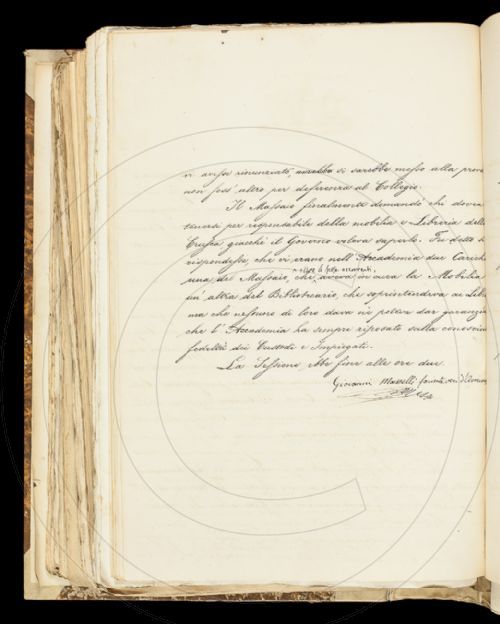 vi avesse rinunziato, si sarebbe messo alla prova
non foss' altro per deferenza al Collegio.
Il Massaio finalmente domandò chi dovea
tenersi per responsabile della mobilia e Libreria della
Crusca, giacchè il Governo voleva saperlo. Fu detto si
rispondesse, che vi erano nell' Accademia due Cariche
una del Massaio, che aveva in cura la Mobilia
un' altra del Bibliotecario, che soprintendeva ai Libri
ma che nessuno di loro dava nè poteva dar garanzia
che l' Accademia ha sempre riposato sulla conosciuta
fedeltà dei Custodi e Impiegati.
La Sessione ebbe fine alle ore due.
Giovanni Masselli